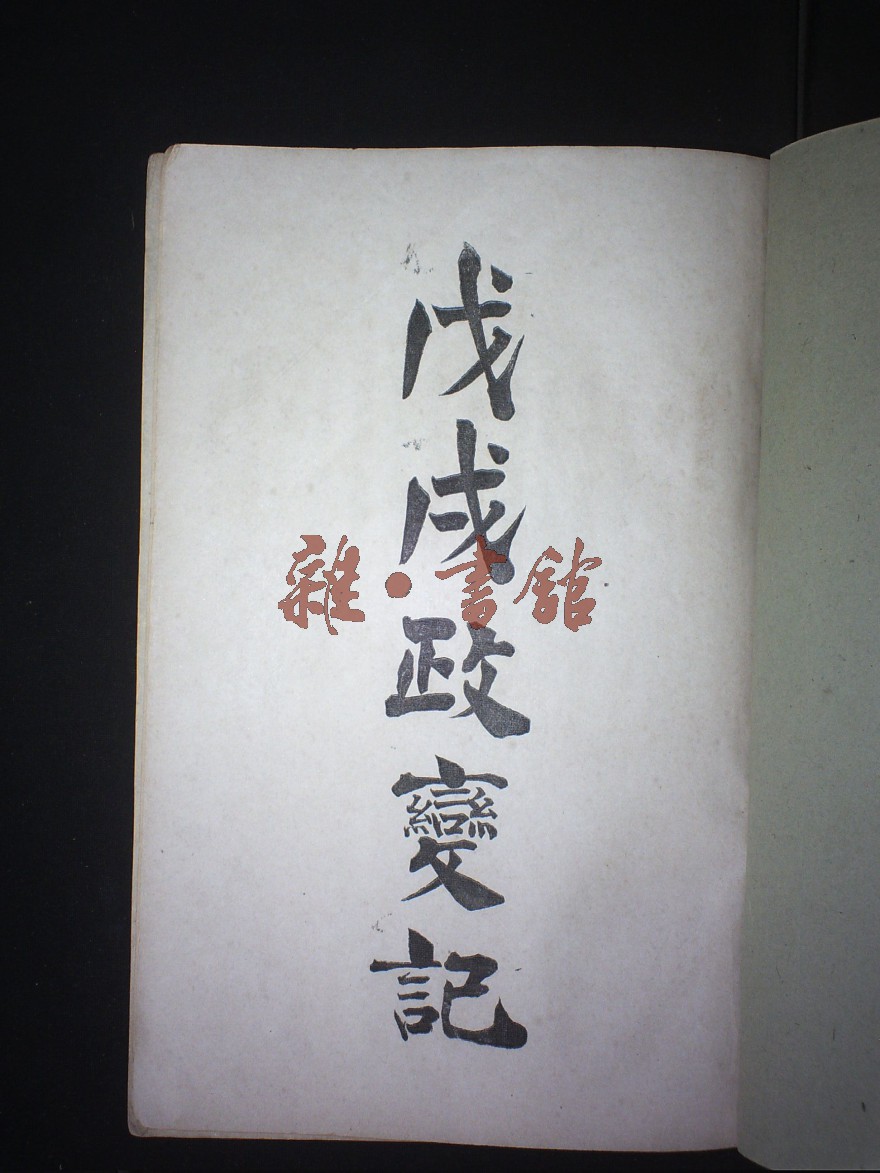 戊戌政變記
雜·書館